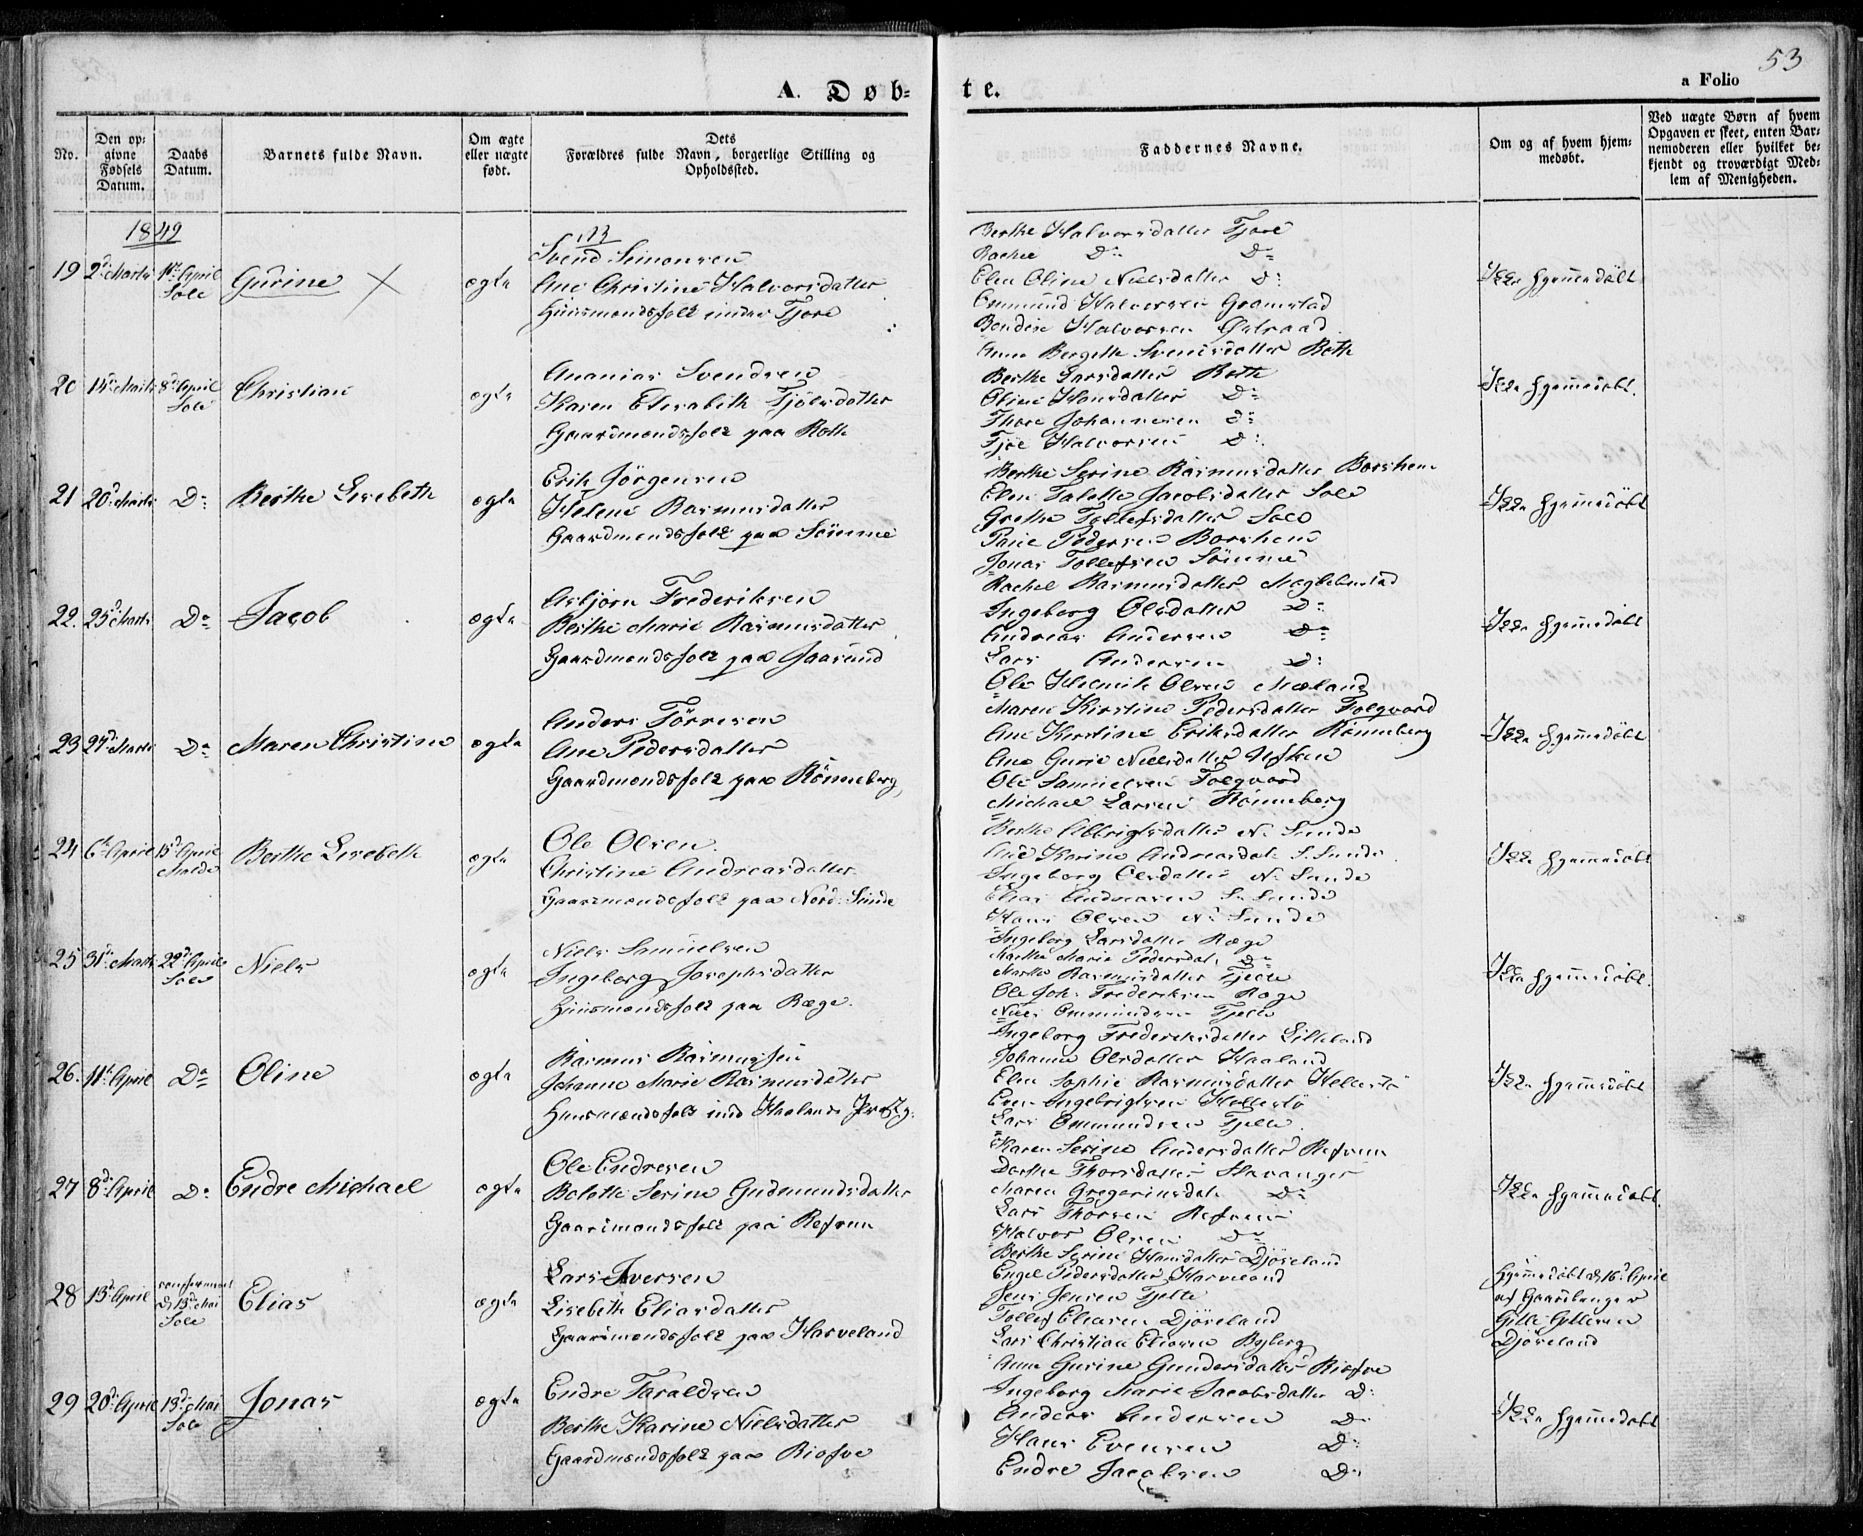 53
A. Døb-
te.
a Folio
No.
Den op-
givne
Fødsels
Datum.
Daabs
Datum.
Barnets fulde Navn.
Om ægte
eller uægte
født.
Dets
Forældres fulde Navn, borgerlige Stilling og
Opholdssted.
Faddernes Navne.
Om og af hvem hjem-
medøbt.
Ved uægte Børn af hvem
Opgaven er skeet, enten Bar-
nemoderen eller hvilket be-
kjendt og troværdigt Med-
lem af Menigheden.
1849
19 2d Marts 1ste April Sole
Gurine
ægte
Svend Simonsen
Ane Christine Halvorsdatter
Huusmandsfolk under Tjore
Berthe Halvorsdatter Tjore
Rachel Do Do
Elen Oline Nielsdatter Do
Ommund Halvorsen Grannstad
Bendix Halvorsen Østraad
Ikke hjemmedøbt
20 14de Marts 8de April Sole
Christian
ægte
Ananias Svendsen
Karen Elisabeth Tjølsdatter
Gaardmandsfolk paa Roth
Anna Bergitte Svendsdatter Roth
Berthe Larsdatter Roth
Oline Hansdatter Do
Thore Johannesen Do
Tjøl Halvorsen Do
Ikke hjemmedøbt.
21 20de Marts Do
Berthe Lisebeth
ægte
Erik Jörgensen
Helene Rasmusdatter
Gaardmandsfolk paa Sömme
Berthe Serine Rasmusdatter Borshem
Elen Talette Jacobsdatter Sole
Grethe Tollefsdatter Sole
Paul Pedersen Borshem
Jonas Tollefsen Sömme
Ikke hjemmedøbt
22. 25de Marts Do
Jacob
ægte
Asbjørn Frederiksen
Berthe Marie Rasmusdatter
Gaardmandsfolk paa Jaasund
Rachel Rasmusdatter Meglebustad
Ingeborg Olsdatter Do
Andreas Andersen Do
Lars Andersen Do
Ole Henrik Olsen Mæland
Ikke hjemmedøbt
23 27de Marts Do
Maren Christine
ægte
Anders Törresen
Ane Pedersdatter
Gaardmandsfolk paa Rönneberg
Maren Kirstine Pedersdatter Folqvard
Ane Kirstine Eriksdatter Rönneberg
Ane Gurie Nielsdatter Ufsken
Ole Samuelsen Folqvard
Michael Larsen Rönneberg
Ikke hjemmedøbt
24 6te April 15de April Malde
Berthe Lisebeth
ægte
Ole Olsen
Christine Andreasdatter
Gaardmandsfolk paa Nord-Sunde
Berthe Albrigtsdatter N. Sunde
Ane Karine Andreasdat. S. Sunde
Ingeborg Olsdatter N. Sunde
Elias Andreasen S. Sunde
Hans Olsen N. Sunde
Ikke hjemmedøbt
25 31te Marts 22de April Sole
Niels
ægte
Niels Samuelsen
Ingeborg Josephsdatter
Huusmandsfolk paa Ræge.
Ingeborg Larsdatter Ræge
Marthe Marie Pedersdat. Do
Marthe Rasmusdatter Tjelte
Ole Joh. Frederiksen Ræge
Niels Ommundsen Tjelte
Ikke hjemmedøbt.
26. 11te April Do
Oline
ægte
Rasmus Rasmussen
Johanne Marie Rasmusdatter
Huusmandsfolk ind
Ingeborg Frederiksdatter Lilleland
Johanne Olsdatter Haaland
Elen Sophie Rasmusdatter Hellestö
Even Ingebrigtsen Hellestö
Lars Ommundsen Tjelte
Ikke hjemmedøbt
27 8de April Do
Endre Michael
ægte
Ole Endresen
Bolette Serine Gudmundsdatter
Gaardmandsfolk paa Refsnes
Karen Serine Andersdatter Refsnes
Dorthe Thorsdatter Stavanger
Maren Gregoriusdat. Do
Lars Thorsen Refsnes
Halvor Olsen Do
Ikke hjemmedøbt.
28 13de April
confirmeret
d. 13de Mai
Sole
Elias
ægte
Lars Iversen
Lisebeth Eliasdatter
Gaardmandsfolk paa Harveland
Berthe Serine Hansdatter Djöseland
Engel Pedersdatter Harveland
Jens Jensen Tjelte
Tollef Eliasen Djöseland
Lars Christian Eliasen Byberg
Hjemmedøbt d. 16de April
af Gaardbruger
Gitle Gitlesen
Djöseland
29 20de April 13de Mai Sole
Jonas
ægte
Endre Taraldsen
Berthe Karine Nielsdatter
Gaardmandsfolk paa Risfoe
Anne Gurine Gundersdatter Risfoe
Ingeborg Marie Jacobsdatter Do
Anders Andersen Do
Hans Evensen Do
Endre Jacobsen Do
Ikke hjemmedøbt